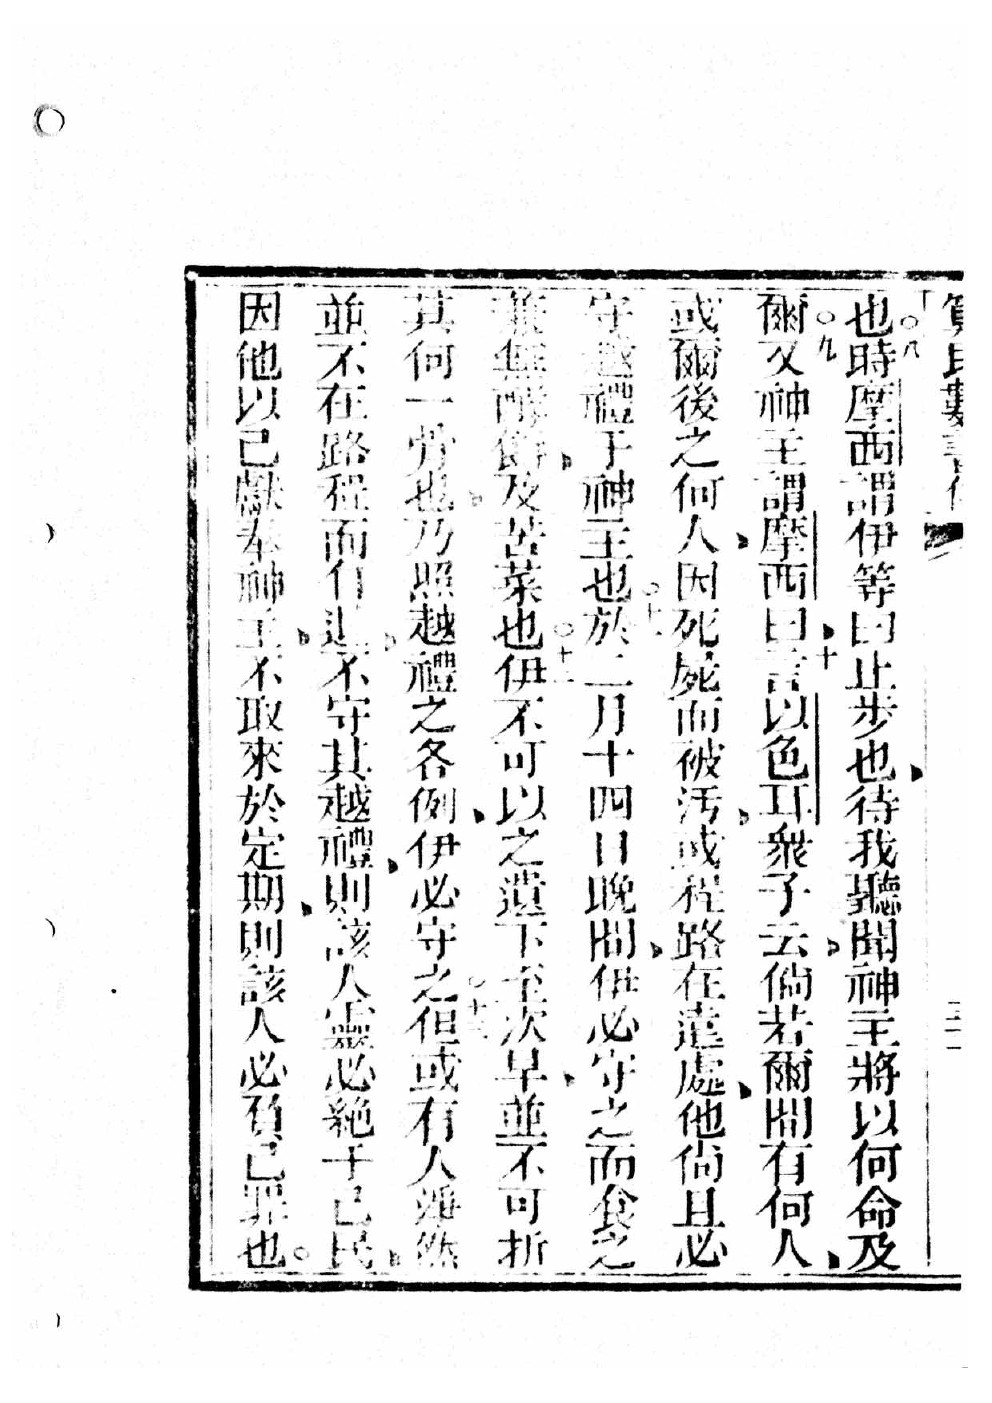 數書傳
三十一
也○八時摩西謂伊等曰止步也待我聽聞神主將以何命及
爾○九又神主謂摩西曰○十言以色耳衆子云倘若爾間有何人
或爾後之何人因死屍而被污或程路在遠處他尚且必
守越禮于神主也○十一於二月十四日晚間伊必守之而食之
兼無酵餅及苦菜也○十二伊不可以之遺下至次早並不可折
其何一骨也乃照越禮之各例伊必守之○十三但或有人潔然
並不在路程而行進不守其越禮則該人靈必絕于己民
因他以己獻奉神主不取來於定期則該人必負己罪也○